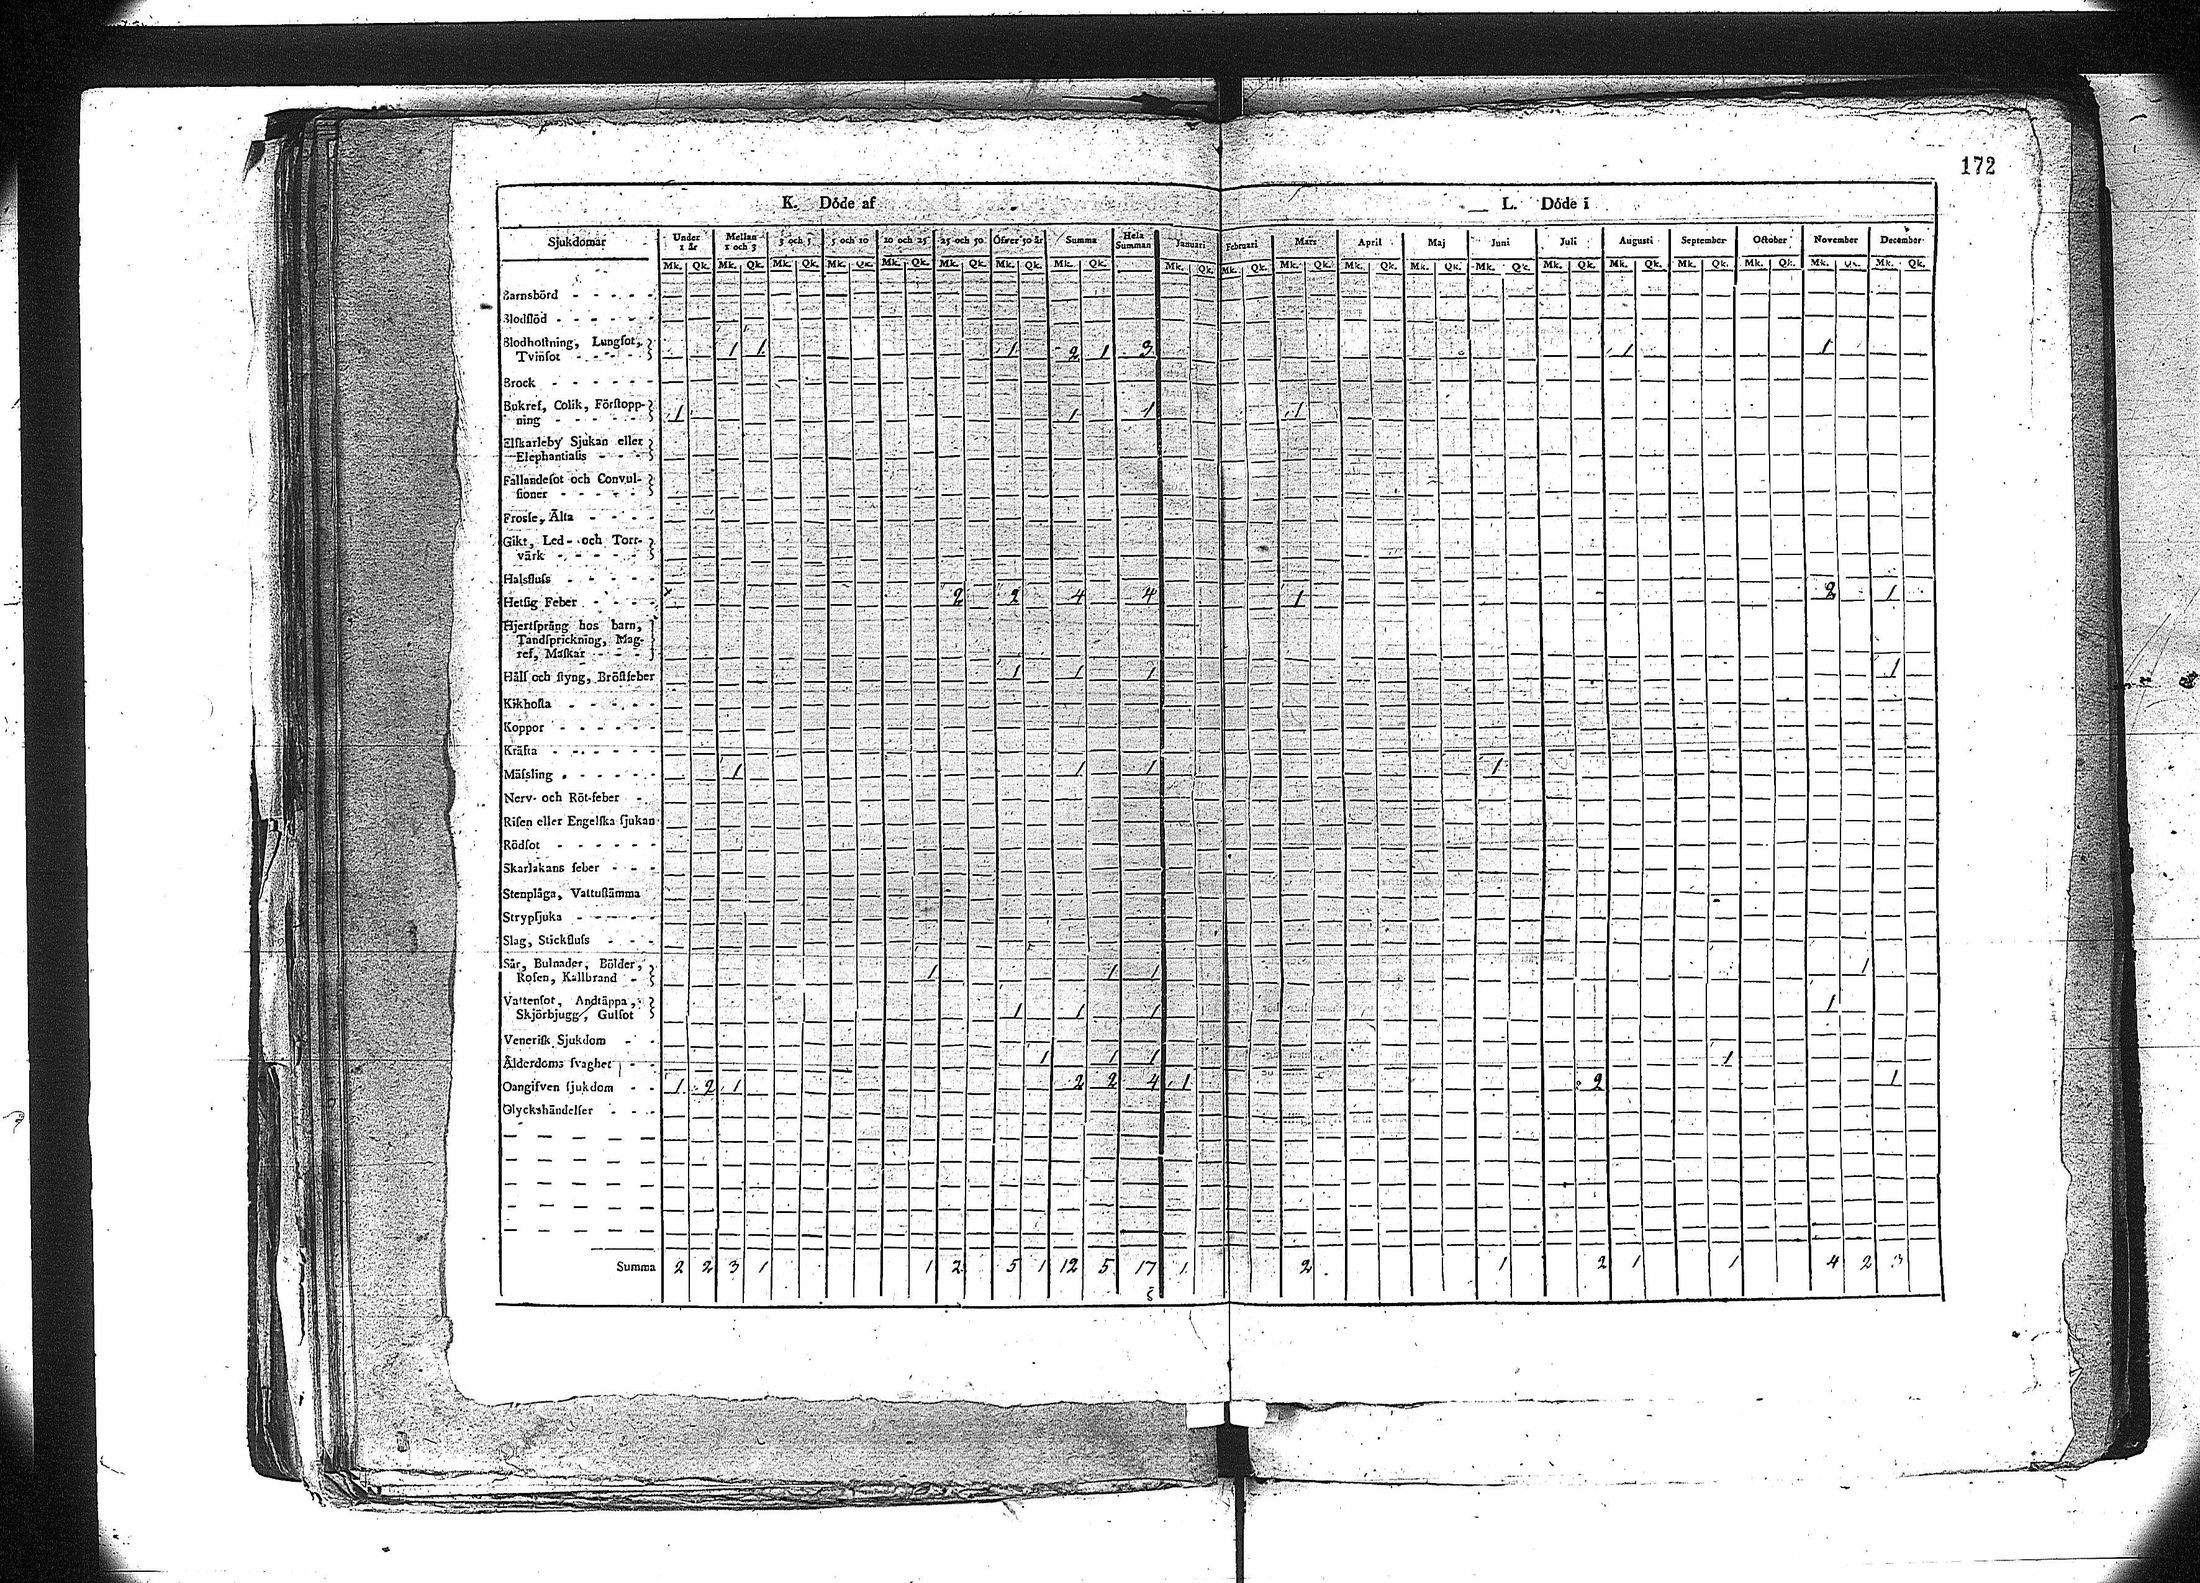 172
K. Döde af
L. Döde i
Sjukdomar Under 1 år Mellan 1 och 3 3 och 5 5 och 10 10 och 25 25 och 50 Öfver 50 år Summa Hela Summan Januari Februari Mars April Maj Juni Juli Augusti September October November December
Mk. Qk. Mk. Qk. Mk. Qk. Mk. Qk. Mk. Qk. Mk. Qk. Mk. Qk. Mk. Qk. Mk. Qk. Mk. Qk. Mk. Qk. Mk. Qk. Mk. Qk. Mk. Qk. Mk. Qk. Mk. Qk. Mk. Qk. Mk. Qk. Mk. Qk. Mk. Qk.
Barnsbörd
Blodflöd
Blodhostning, Lungsot,
Tvinsot 1 1 1 2 1 3 1 1
Brock
Bukref, Colik, Förstopp-
ning 1 1 1 1
Elfkarleby Sjukan eller
Elephantiasis
Fallandesot och Convul-
sioner
Frossa, Älta
Gikt, Led- och Torr-
värk
Halsfluss
Hetsig Feber 2 2 4 4 1 2 1
Hjertsprång hos barn,
Tandsprickning, Mag-
ref, Maskar
Håll och styng, Bröstfeber 1 1 1 1
Kikhosta
Koppor
Kräfta
Mässling 1 1 1 1
Nerv- och Röt-feber
Risen eller Engelska sjukan
Rödsot
Skarlakans feber
Stenplåga, Vattustämma
Strypsjuka
Slag, Stickfluss
Sår, Bulnader, Bölder,
Rosen, Kallbrand 1 1 1 1
Vattensot, Andtäppa,
Skjörbjugg, Gulsot 1 1 1 1
Venerisk Sjukdom
Ålderdoms svaghet 1 1 1 1
Oangifven sjukdom 1 2 1 2 2 4 1 2 1
Olyckshändelser
Summa 2 2 3 1 1 2 5 1 12 5 17 1 2 1 2 1 1 4 2 3